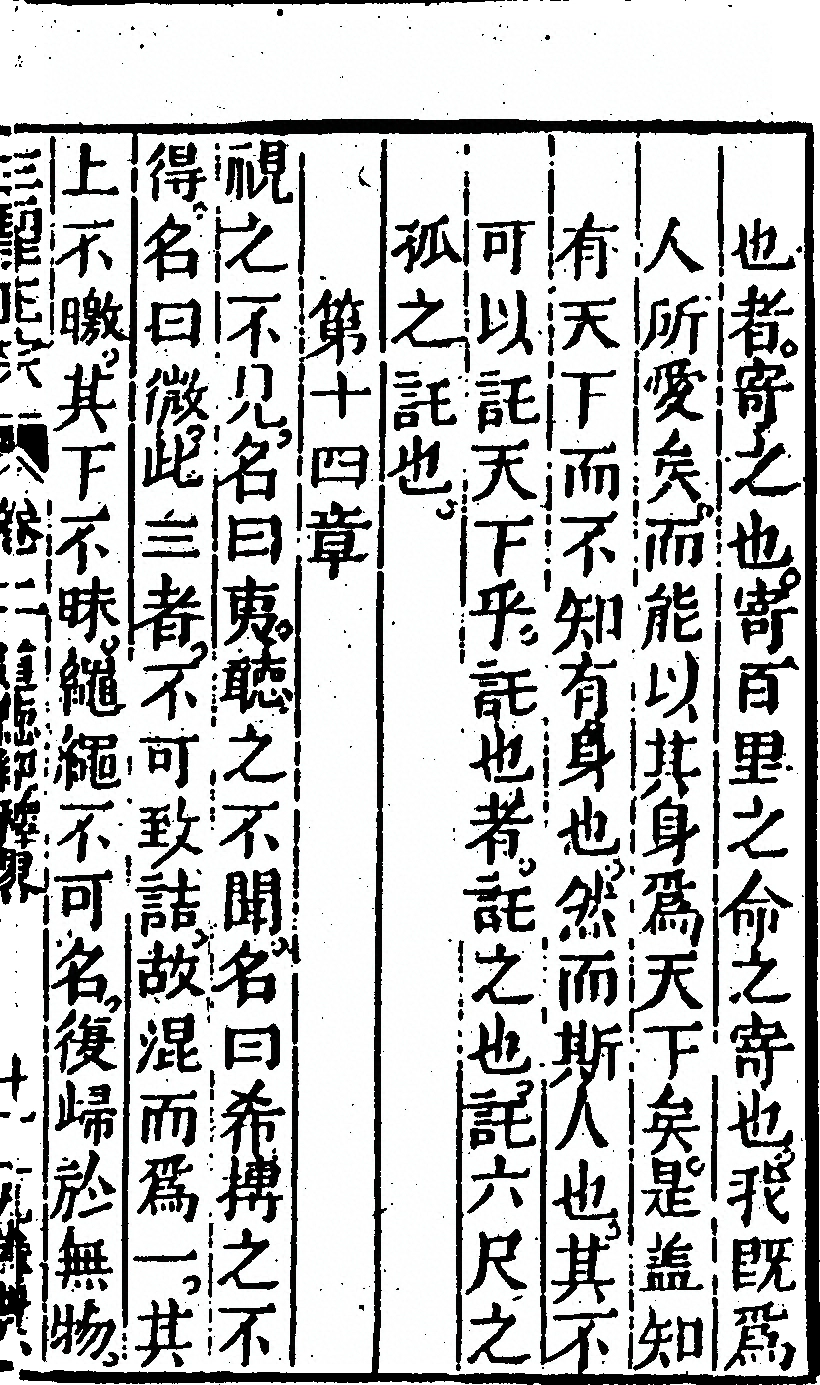 也者。寄之也。寄百里之命之寄也。我既爲
人所愛矣。而能以其身爲天下矣。是盖知
有天下而不知有身也。然而斯人也。其不
可以託天下乎。託也者。託之也。託六尺之
孤之託也。
第十四章
視之不見。名曰夷。聽之不聞。名曰希。摶之不
得。名曰微。此三者。不可致詰。故混而爲一。其
上不皦。其下不昧。繩繩不可名。復歸於無物。